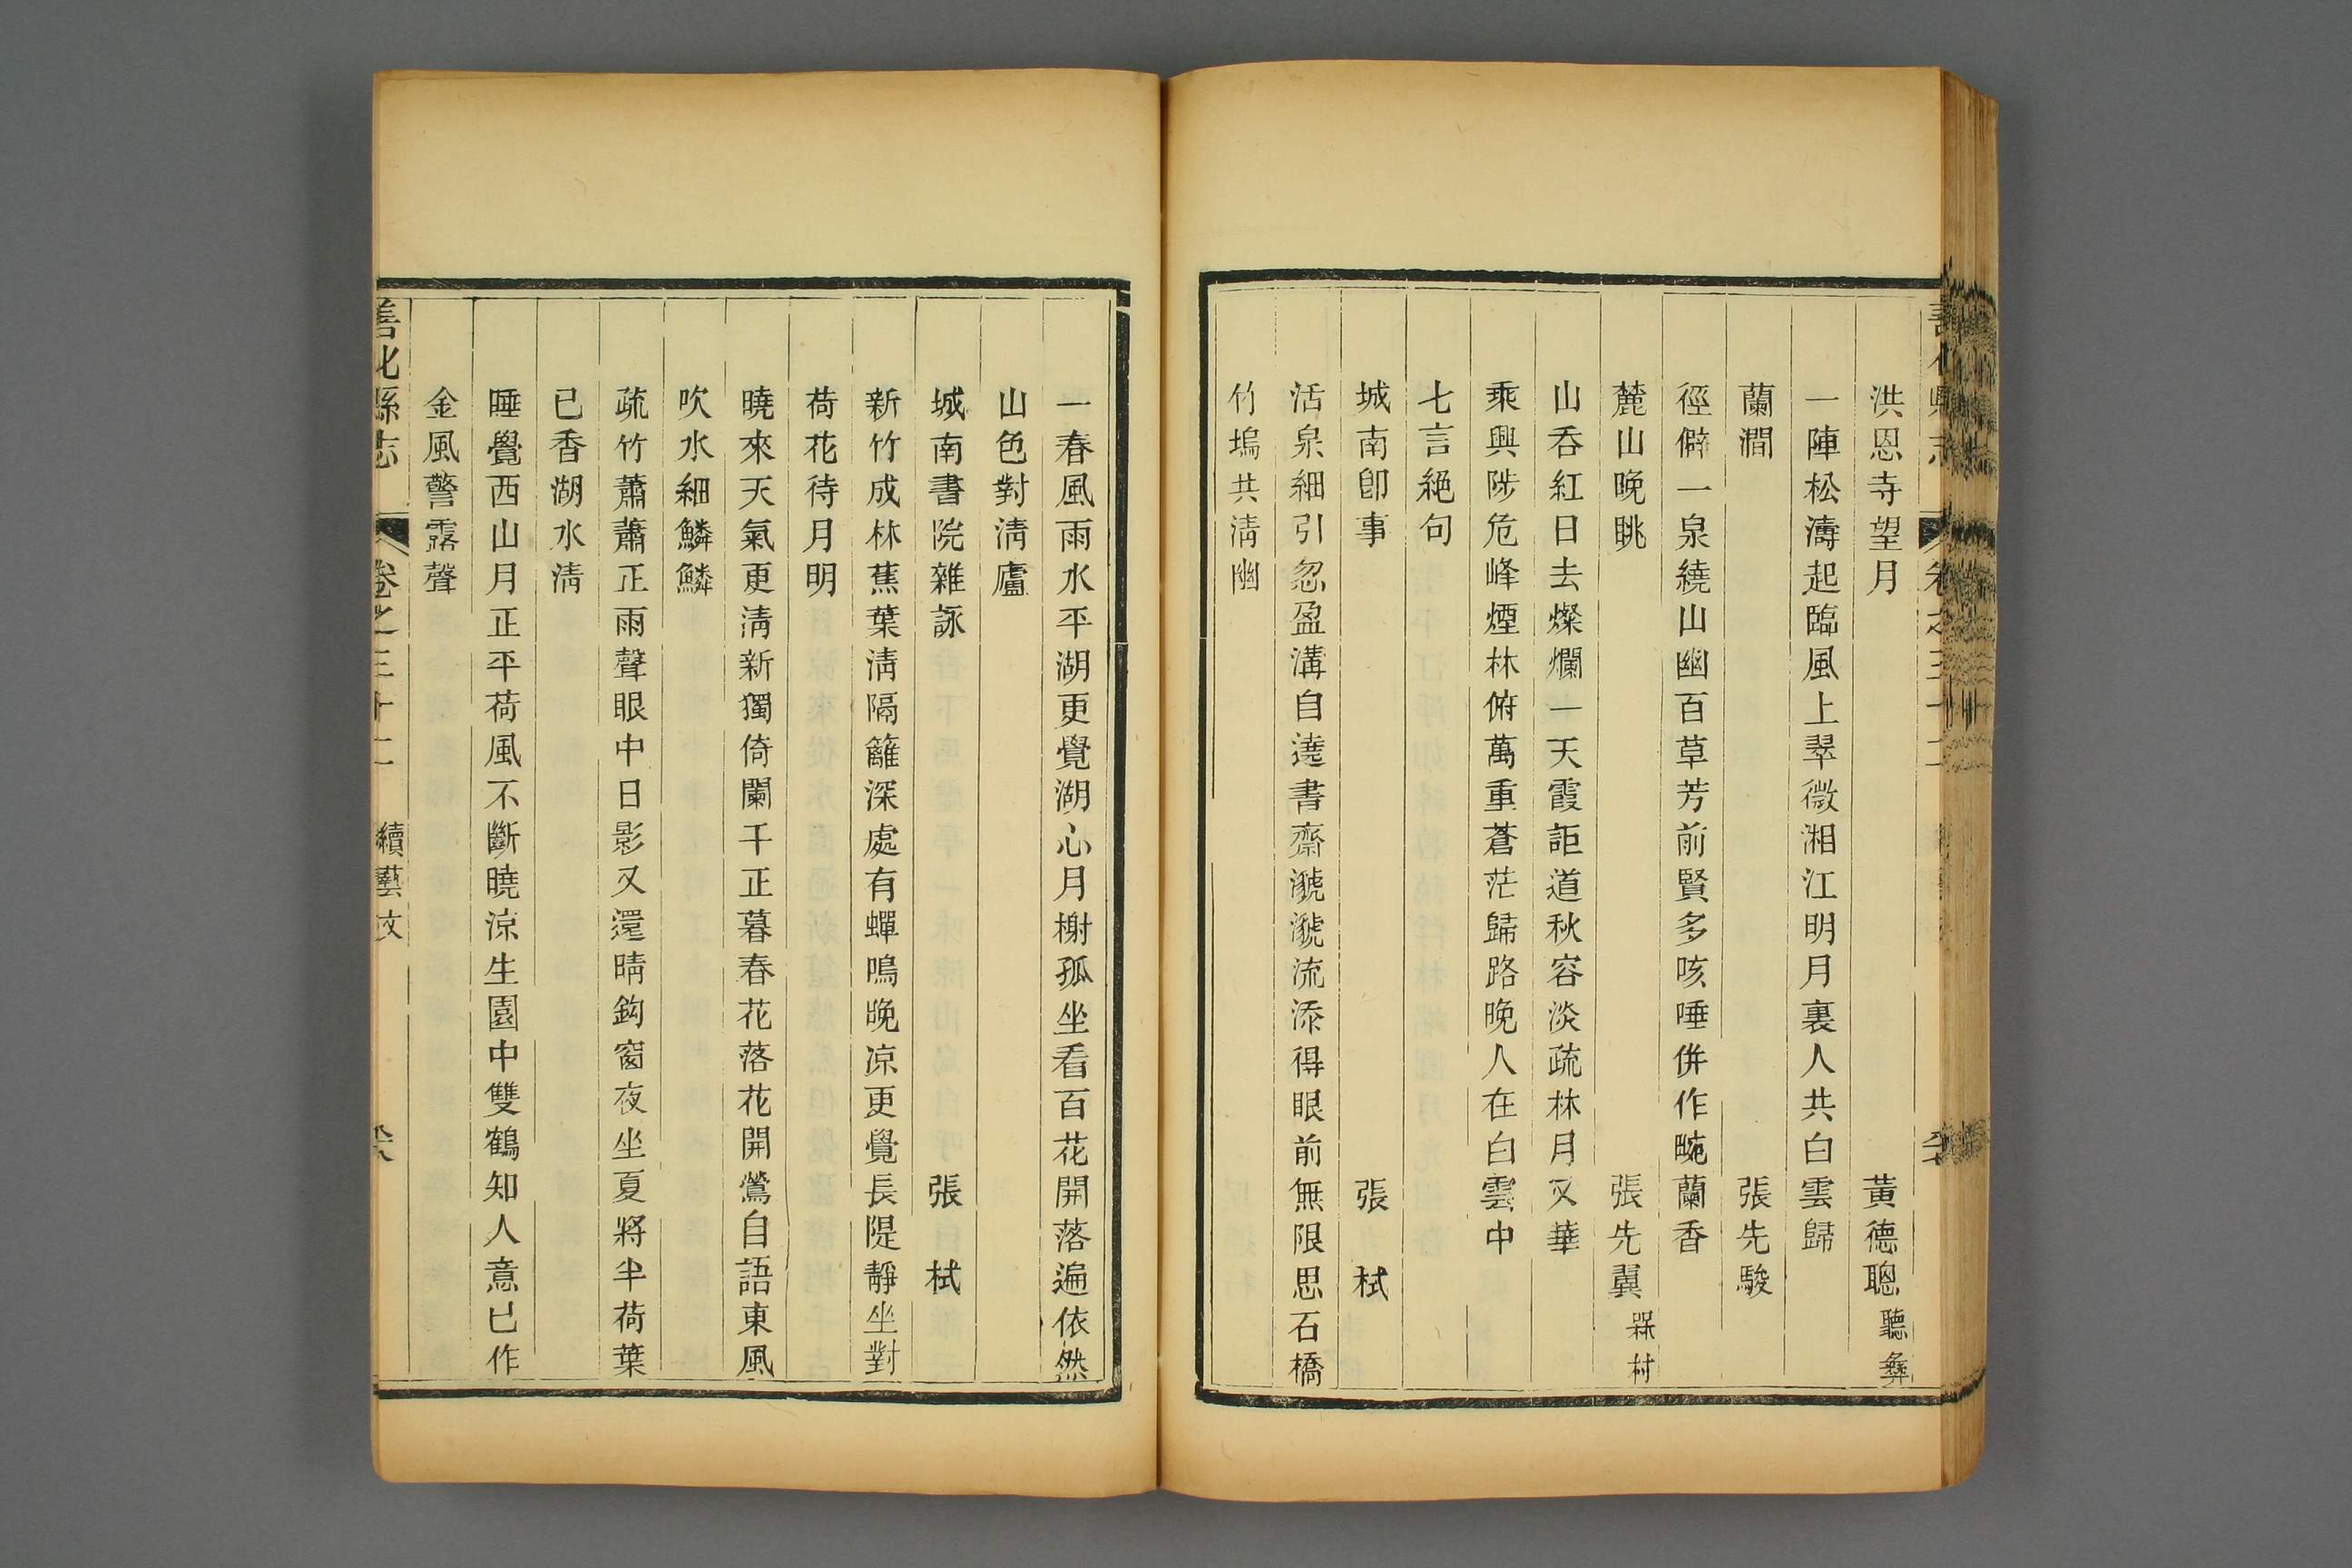 洪恩寺望月 黃德聰 聽彝
一陣松濤起臨風上翠微湘江明月裏人共白雲歸
蘭澗 張先駿
徑僻一泉繞山幽百草芳前賢多咳唾併作畹蘭香
麓山晚眺 張先翼 槑村
山吞紅日去燦爛一天霞詎道秋容淡疏林月又華
乘興陟危峰煙林俯萬重蒼茫歸路晚人在白雲中
七言絕句
城南卽事 張栻
活泉細引忽盈溝自遶書齋㶁㶁流添得眼前無限思石橋
竹塢共淸幽
一春風雨水平湖更覺湖心月榭孤坐看百花開落遍依然
山色對淸廬
城南書院雜詠 張栻
新竹成林蕉葉淸隔籬深處有蟬鳴晚凉更覺長隄靜坐對
荷花待月明
曉來天氣更淸新獨倚闌干正暮春花落花開鶯自語東風
吹水細鱗鱗
疏竹蕭蕭正雨聲眼中日影又還晴鈎窗夜坐夏將半荷葉
已香湖水淸
睡覺西山月正平荷風不斷曉涼生園中雙鶴知人意已作
金風警露聲
善化縣志 卷之三十二 續藝文